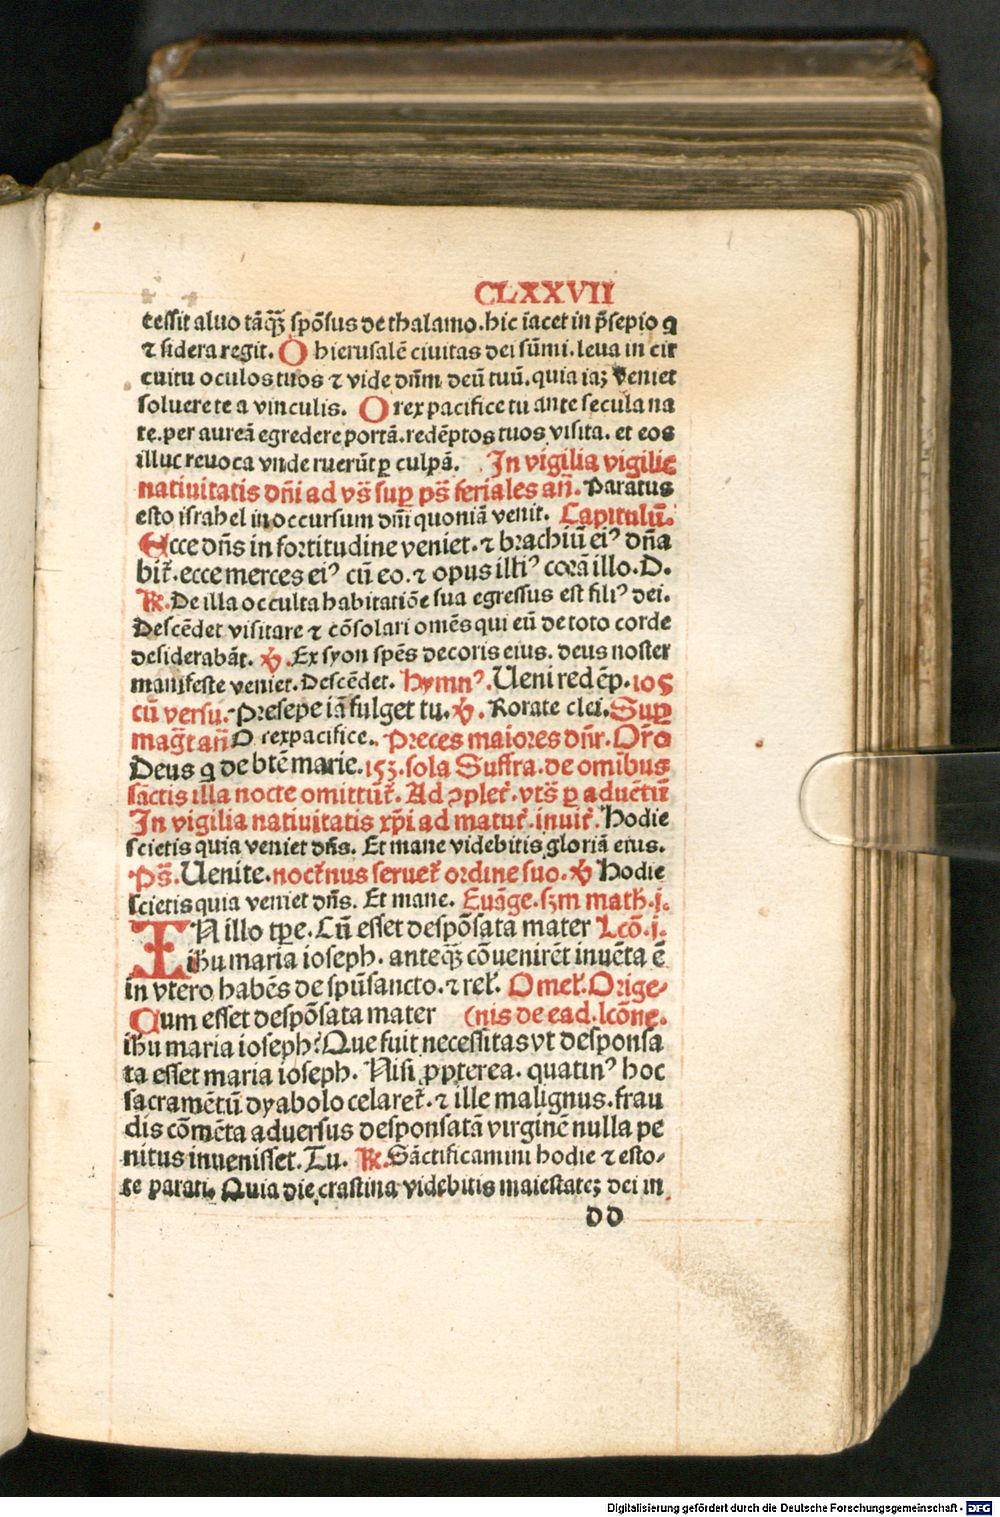 CLXXVII
cessit aluo tãqȝ̃ spõsus de thalamo. hic iacet in p̃sepio q
⁊ sidera regit. O hierusalẽ ciuitas dei sũmi. leua in cir
cuitu oculos tuos ⁊ vide dñm deũ tuũ. quia iaȝ veniet
soluere te a vinculis. O rex pacifice tu ante secula na
te. per aureã egredere portã. redẽptos tuos visita. et eos
illuc reuoca vnde ruerũt ꝑ culpã. In vigilia vigilie
natiuitatis dñi ad vs̃ suꝑ ps̃ feriales añ. Paratus
esto israhel in occursum dñi quoniã venit. Capitulũ.
Ecce dñs in fortitudine veniet. ⁊ brachiũ eiꝰ dña
bit̃. ecce merces eiꝰ cũ eo. ⁊ opus illiꝰ corã illo. D.
℟. De illa occulta habitatiõe sua egressus est filiꝰ dei.
Descẽdet visitare ⁊ cõsolari omẽs qui eũ de toto corde
desiderabãt. ℣. Ex syon spẽs decoris eius. deus noster
manifeste veniet. Descẽdet. Hymnꝰ. Ueni redẽp. 105
cũ versu. Presepe iã fulget tu. ℣. Rorate clei. Suꝑ
mag̃t añ O rex pacifice. Preces maiores dñr. Or̃o
Deus q de btẽ marie. 153. sola Suffra. de omĩbus
sãctis illa nocte omittũt̃. Ad ꝯplet̃. vts̃ ꝑ aduẽtũ
In vigilia natiuitatis xp̃i ad matut̃. inuit̃. Hodie
scietis quia veniet dñs. Et mane videbitis gloriã eius.
Ps̃. Uenite. noct̃nus seruet̃ ordine suo. ℣ Hodie
scietis quia veniet dñs. Et mane. Euãge. sȝm math. i.
IN illo tp̃e. Cũ esset despõsata mater Lcõ. i.
ih̃u maria ioseph. anteqȝ̃ cõuenirẽt inuẽta ẽ
in vtero habẽs de spũsancto. ⁊ rel̃. Omel̃. Orige-
Cum esset despõsata mater (nis de ead. lcõne.
ih̃u maria ioseph? Que fuit necessitas vt desponsa
ta esset maria ioseph. Nisi ꝓpterea. quatinꝰ hoc
sacramẽtũ dyabolo celaret̃. ⁊ ille malignus. frau
dis cõmẽta aduersus desponsatã virginẽ nulla pe
nitus inuenisset. Tu. ℟. Sãctificamini hodie ⁊ esto-
te parati. Quia die crastina videbitis maiestateȝ dei in
DD
Digitalisierung gefördert durch die Deutsche Forschungsgemeinschaft - DFG